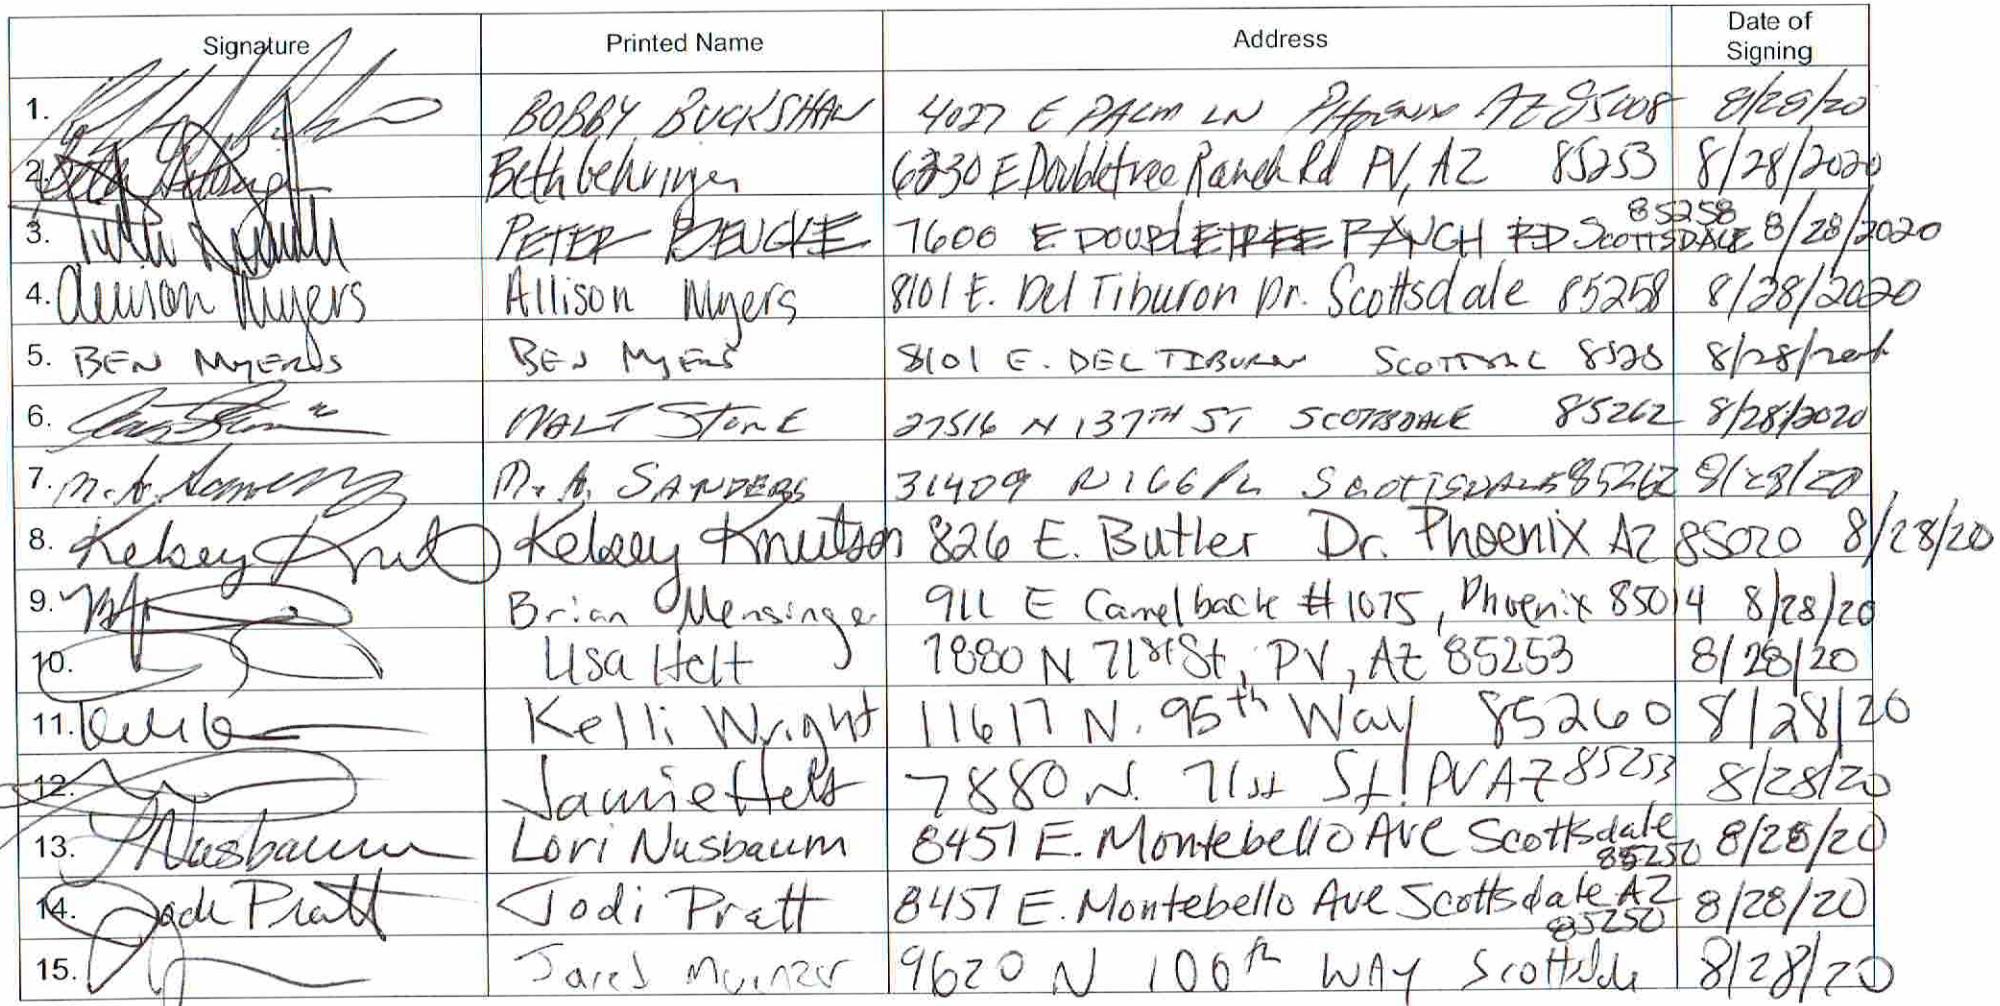 Signature Printed Name Address Date of Signing
1. BOBBY BUCKSHAW 4027 E PALM LN PHOENIX AZ 85008 8/28/20
2. Beth behringer 6330 E Doubletree Ranch Rd PV, AZ 85253 8/28/2020
3. PETER BEUCKE 7600 E DOUBLETREE RANCH RD SCOTTSDALE 85258 8/28/2020
4. Allison Myers Allison Myers 8101 E. Del Tiburon Dr. Scottsdale 85258 8/28/2020
5. BEN MYERS BEN MYERS 8101 E. DEL TIBURON 8/28/
6. WALT STONE 27516 N 137TH ST SCOTTSDALE 85262 8/28/2020
7. M. A. SANDERS 31409 N 166 PL SCOTTSDALE 85262 8/28/20
8. Kelsey Knut Kelsey Knutson 826 E. Butler Dr. Phoenix AZ 85020 8/28/20
9. Brian Mensinger 911 E Camelback #1075, Phoenix 85014 8/28/20
10. Lisa Helt 7880 N 71st St, PV, AZ 85253 8/28/20
11. Kelli Wright 11617 N. 95th Way 85260 8/28/20
12. Jamie Helt 7880 N. 71st St! PV AZ 85253 8/28/20
13. Nusbaum Lori Nusbaum 8451 E. Montebello Ave Scottsdale 85250 8/28/20
14. Jodi Pratt Jodi Pratt 8451 E. Montebello Ave Scottsdale AZ 85250 8/28/20
15. Jared 9620 N 100th WAY Scottsdale 8/28/20